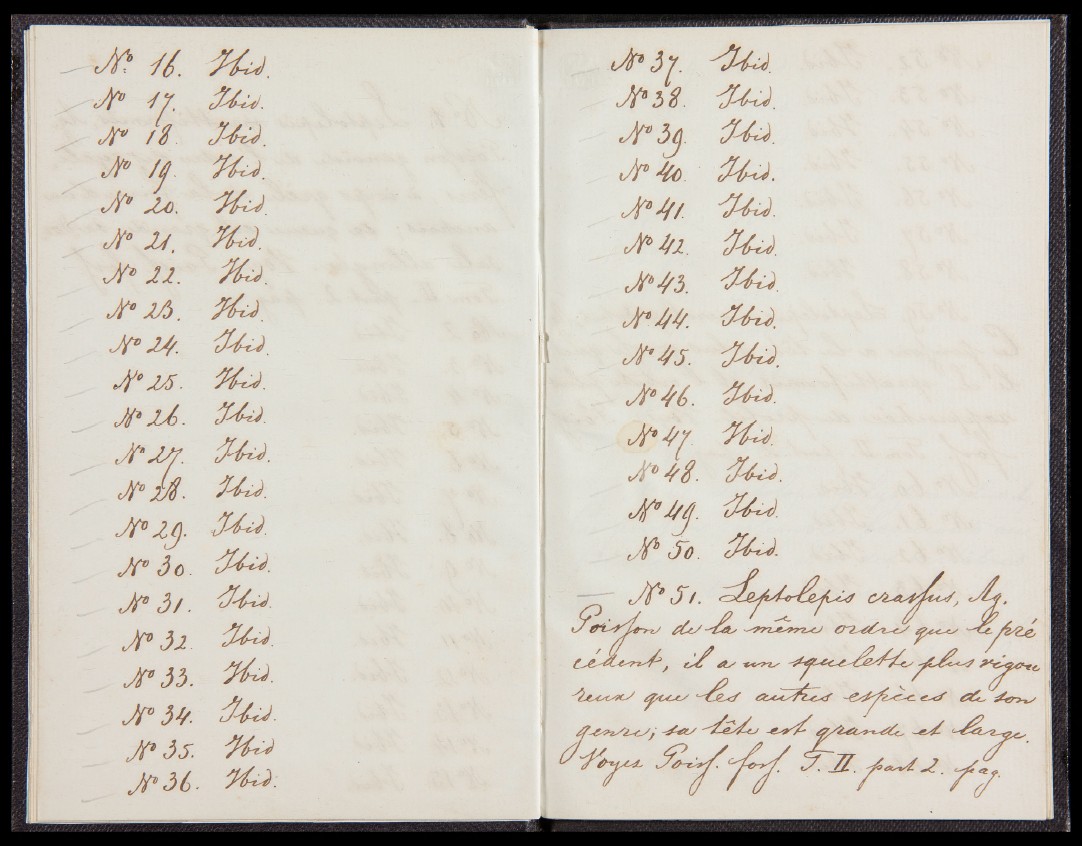 — Nº 16. Ibid.
— Nº 17. Ibid.
— Nº 18. Ibid.
— Nº 19. Ibid.
— Nº 20. Ibid.
— Nº 21. Ibid.
— Nº 22. Ibid.
— Nº 23. Ibid.
— Nº 24. Ibid.
— Nº 25. Ibid.
— Nº 26. Ibid.
— Nº 27. Ibid.
— Nº 28. Ibid.
— Nº 29. Ibid.
— Nº 30. Ibid.
— Nº 31. Ibid.
— Nº 32. Ibid.
— Nº 33. Ibid.
— Nº 34. Ibid.
— Nº 35. Ibid
— Nº 36. Ibid.
— Nº 37. Ibid.
— Nº 38. Ibid.
— Nº 39. Ibid.
— Nº 40. Ibid.
— Nº 41. Ibid.
— Nº 42. Ibid.
— Nº 43. Ibid.
— Nº 44. Ibid.
— Nº 45. Ibid.
— Nº 46. Ibid.
— Nº 47. Ibid.
— Nº 48. Ibid.
— Nº 49. Ibid.
— Nº 50. Ibid.
— Nº 51. Leptolepis crassus, Ag.
Poisson de la même ordre que le pré
cédent, il a un squelette plus vigou
reux que les autres espèces de son
genre; sa tête est grande et large.
Voyez Poiss. foss. T. II. part 2. pag.